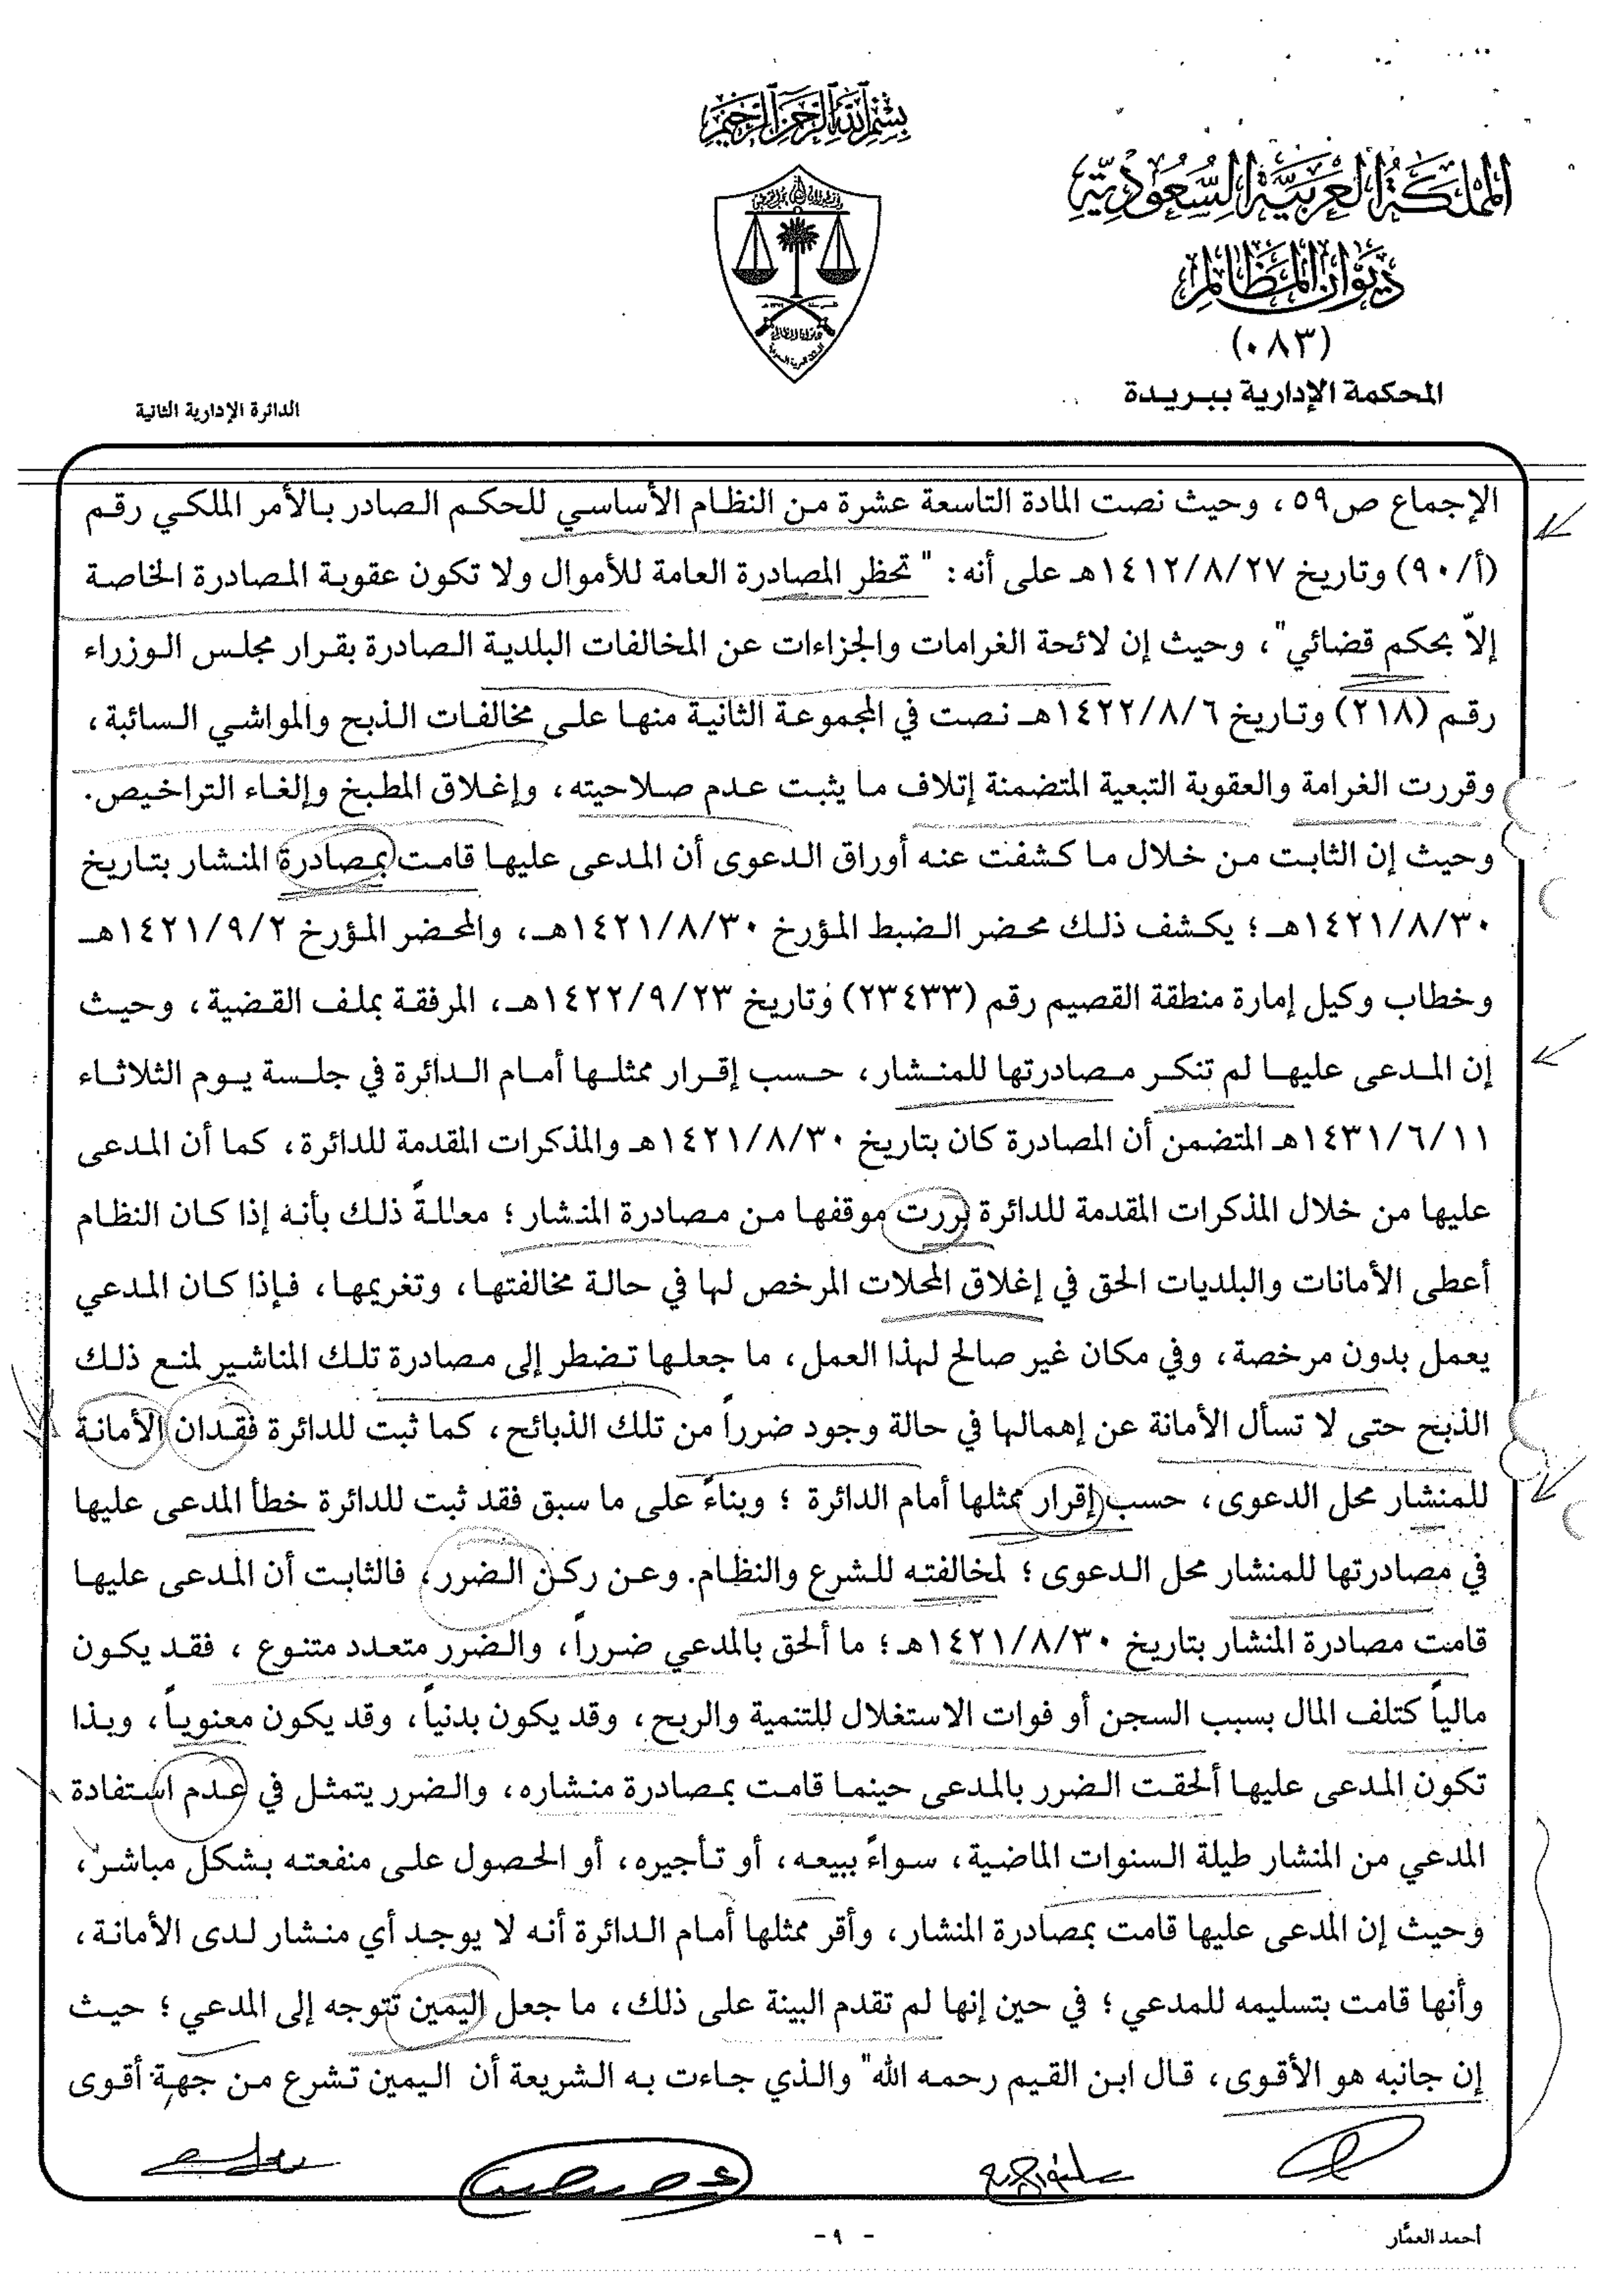 بسم الله الرحمن الرحيم
المملكة العربية السعودية
ديوان المظالم
(٠٨٣)
المحكمة الإدارية ببريدة
الدائرة الإدارية الثانية
الإجماع ص٥٩، وحيث نصت المادة التاسعة عشرة من النظام الأساسي للحكم الصادر بالأمر الملكي رقم
(أ/٩٠) وتاريخ ١٤١٢/٨/٢٧هـ على أنه: " تحظر المصادرة العامة للأموال ولا تكون عقوبة المصادرة الخاصة
إلاّ بحكم قضائي"، وحيث إن لائحة الغرامات والجزاءات عن المخالفات البلدية الصادرة بقرار مجلس الوزراء
رقم (٢١٨) وتاريخ ١٤٢٢/٨/٦هـ نصت في المجموعة الثانية منها على مخالفات الذبح والمواشي السائبة،
وقررت الغرامة والعقوبة التبعية المتضمنة إتلاف ما يثبت عدم صلاحيته، وإغلاق المطبخ وإلغاء التراخيص.
وحيث إن الثابت من خلال ما كشفت عنه أوراق الدعوى أن المدعى عليها قامت بمصادرة المنشار بتاريخ
١٤٢١/٨/٣٠هـ؛ يكشف ذلك محضر الضبط المؤرخ ١٤٢١/٨/٣٠هـ، والمحضر المؤرخ ١٤٢١/٩/٢هـ
وخطاب وكيل إمارة منطقة القصيم رقم (٢٣٤٣٣) وتاريخ ١٤٢٢/٩/٢٣هـ، المرفقة بملف القضية، وحيث
إن المدعى عليها لم تنكر مصادرتها للمنشار، حسب إقرار ممثلها أمام الدائرة في جلسة يوم الثلاثاء
١٤٣١/٦/١١هـ المتضمن أن المصادرة كان بتاريخ ١٤٢١/٨/٣٠هـ والمذكرات المقدمة للدائرة، كما أن المدعى
عليها من خلال المذكرات المقدمة للدائرة بررت موقفها من مصادرة المنشار؛ معللةً ذلك بأنه إذا كان النظام
أعطى الأمانات والبلديات الحق في إغلاق المحلات المرخص لها في حالة مخالفتها، وتغريمها، فإذا كان المدعي
يعمل بدون مرخصة، وفي مكان غير صالح لهذا العمل، ما جعلها تضطر إلى مصادرة تلك المناشير لمنع ذلك
الذبح حتى لا تسأل الأمانة عن إهمالها في حالة وجود ضرراً من تلك الذبائح، كما ثبت للدائرة فقدان الأمانة
للمنشار محل الدعوى، حسب إقرار ممثلها أمام الدائرة ؛ وبناءً على ما سبق فقد ثبت للدائرة خطأ المدعى عليها
في مصادرتها للمنشار محل الدعوى؛ لمخالفته للشرع والنظام. وعن ركن الضرر، فالثابت أن المدعى عليها
قامت مصادرة المنشار بتاريخ ١٤٢١/٨/٣٠هـ؛ ما ألحق بالمدعي ضرراً، والضرر متعدد متنوع ، فقد يكون
مالياً كتلف المال بسبب السجن أو فوات الاستغلال للتنمية والربح، وقد يكون بدنياً، وقد يكون معنوياً، وبذا
تكون المدعى عليها ألحقت الضرر بالمدعى حينما قامت بمصادرة منشاره، والضرر يتمثل في عدم استفادة
المدعي من المنشار طيلة السنوات الماضية، سواءً ببيعه، أو تأجيره، أو الحصول على منفعته بشكل مباشر،
وحيث إن المدعى عليها قامت بمصادرة المنشار، وأقر ممثلها أمام الدائرة أنه لا يوجد أي منشار لدى الأمانة،
وأنها قامت بتسليمه للمدعي؛ في حين إنها لم تقدم البينة على ذلك، ما جعل اليمين تتوجه إلى المدعي؛ حيث
إن جانبه هو الأقوى، قال ابن القيم رحمه الله" والذي جاءت به الشريعة أن اليمين تشرع من جهة أقوى
أحمد العمَّار
- ٩ -